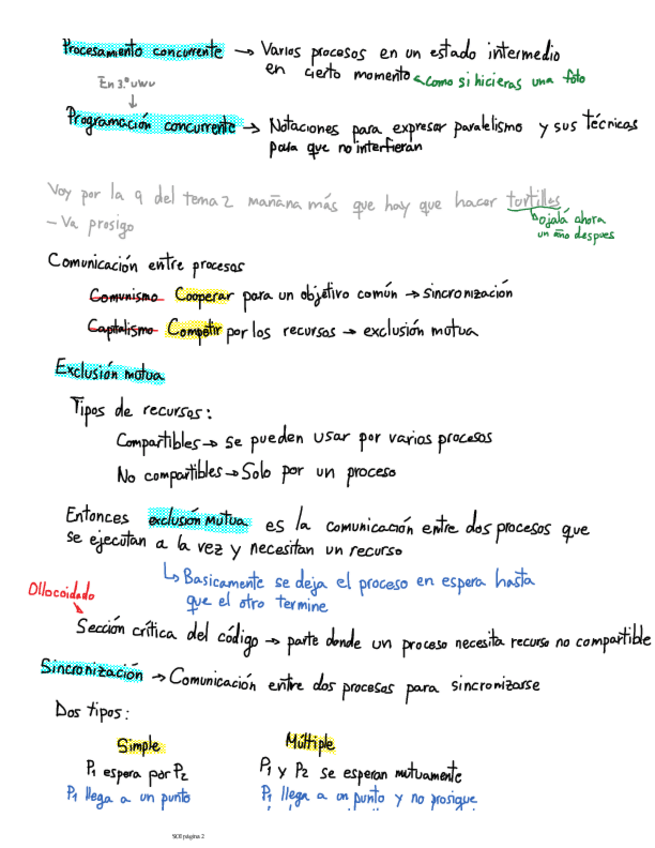 Procesamiento concurrente → Varios procesos en un estado intermedio
en cierto momento ← como si hicieras una foto
En 3.º uwu
↓
Programación concurrente → Notaciones para expresar paralelismo y sus técnicas
para que no interfieran
Voy por la 9 del tema 2 mañana más que hay que hacer tortilles
ojalá ahora
un año despues
- Va prosigo
Comunicación entre procesos
Comunismo Cooperar para un objetivo común → sincronización
Capitalismo Competir por los recursos → exclusión mutua
Exclusión mutua
Tipos de recursos:
Compartibles → se pueden usar por varios procesos
No compartibles → Solo por un proceso
Entonces exclusión mutua es la comunicación entre dos procesos que
se ejecutan a la vez y necesitan un recurso
↳ Basicamente se deja el proceso en espera hasta
que el otro termine
Ollocoidado
Sección crítica del código → parte donde un proceso necesita recurso no compartible
Sincronización → Comunicación entre dos procesos para sincronizarse
Dos tipos:
Simple Múltiple
P1 espera por P2 P1 y P2 se esperan mutuamente
P1 llega a un punto P1 llega a un punto y no prosigue
SOI página 2